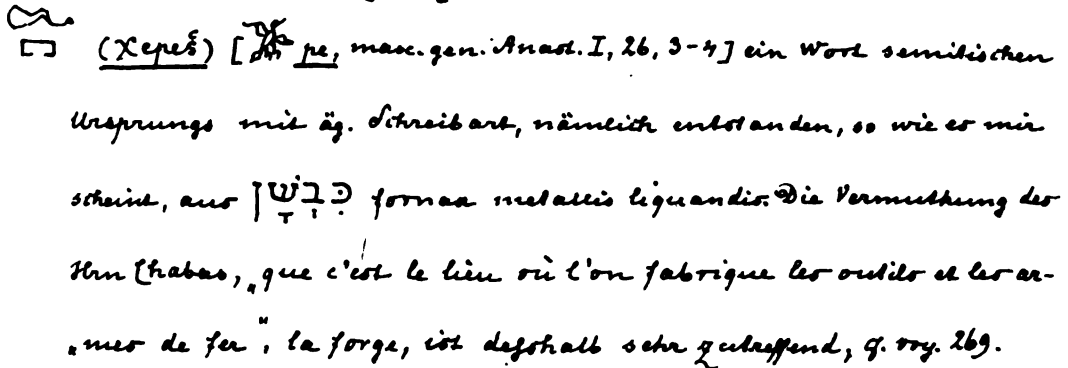 (Xepeš) [ pe, masc. gen. Anast. I, 26, 3-4] ein Wort semitischen
Ursprungs mit äg. Schreibart, nämlich entstanden, so wie es mir
scheint, aus כִּבְשָׁן fornax metallis liquandis. Die Vermuthung des
Hrn Chabas, „que c'est le lieu où l'on fabrique les outils et les ar-
„mes de fer", la forge, ist deßhalb sehr zutreffend, cf. voy. 269.